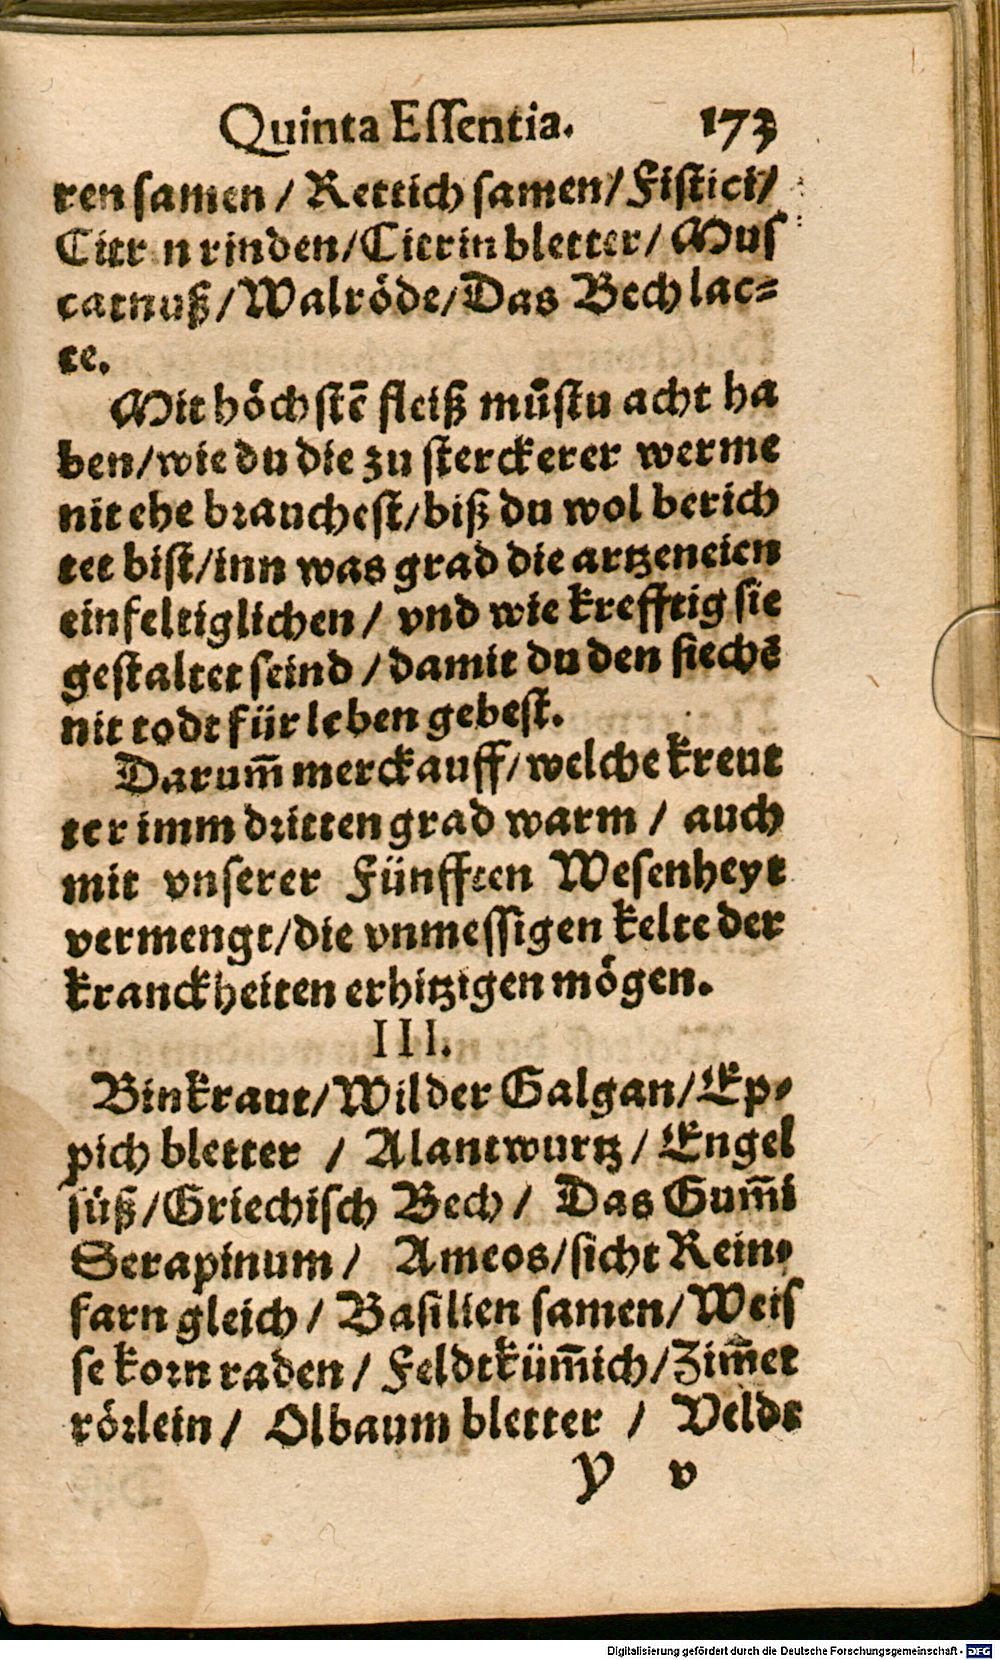 Quinta Essentia. 173
ren samen / Rettich samen/Fistici/
Citr n rinden/Citrin bletter/ Mus
catnuß/Walröde/Das Bech lac-
te.
Mit höchstē fleiß můstu acht ha
ben/wie du die zu sterckerer werme
nit ehe brauchest/biß du wol berich
tet bist/inn was grad die artzeneien
einfeltiglichen / vnd wie krefftig sie
gestaltet seind / damit du den siechē
nit todt für leben gebest.
Darum̄ merckauff/welche kreut
ter imm dritten grad warm / auch
mit vnserer Fünfften Wesenheyt
vermengt/die vnmessigen kelte der
kranckheiten erhitzigen mögen.
III.
Binkraut/Wilder Galgan/Ep-
pich bletter / Alantwurtz / Engel
süß/Griechisch Bech / Das Gum̄i
Serapinum / Ameos/sicht Rein-
farn gleich / Basilien samen/Weis
se korn raden / Feldtküm̄ich/Zim̄et
rörlein / Olbaum bletter / Veldt
Y v
Digitalisierung gefördert durch die Deutsche Forschungsgemeinschaft - DFG